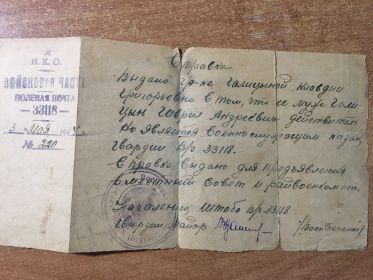 Н.К.О.
ВОЙСКОВАЯ ЧАСТЬ
ПОЛЕВАЯ ПОЧТА
33118
2 Мая 194
№ 220
Справка
Выдано гр-ке Галицыной Клавдии
Григорьевне в том, что её муж Гали-
цын Гаврил Андреевич действител
но является военнослужащим
Гвардии в/ч 33118.
Справка выдано для предъявления
в Совет и райвоенкомат.
Начальник штаба в/ч 33118
Гвардии Майор